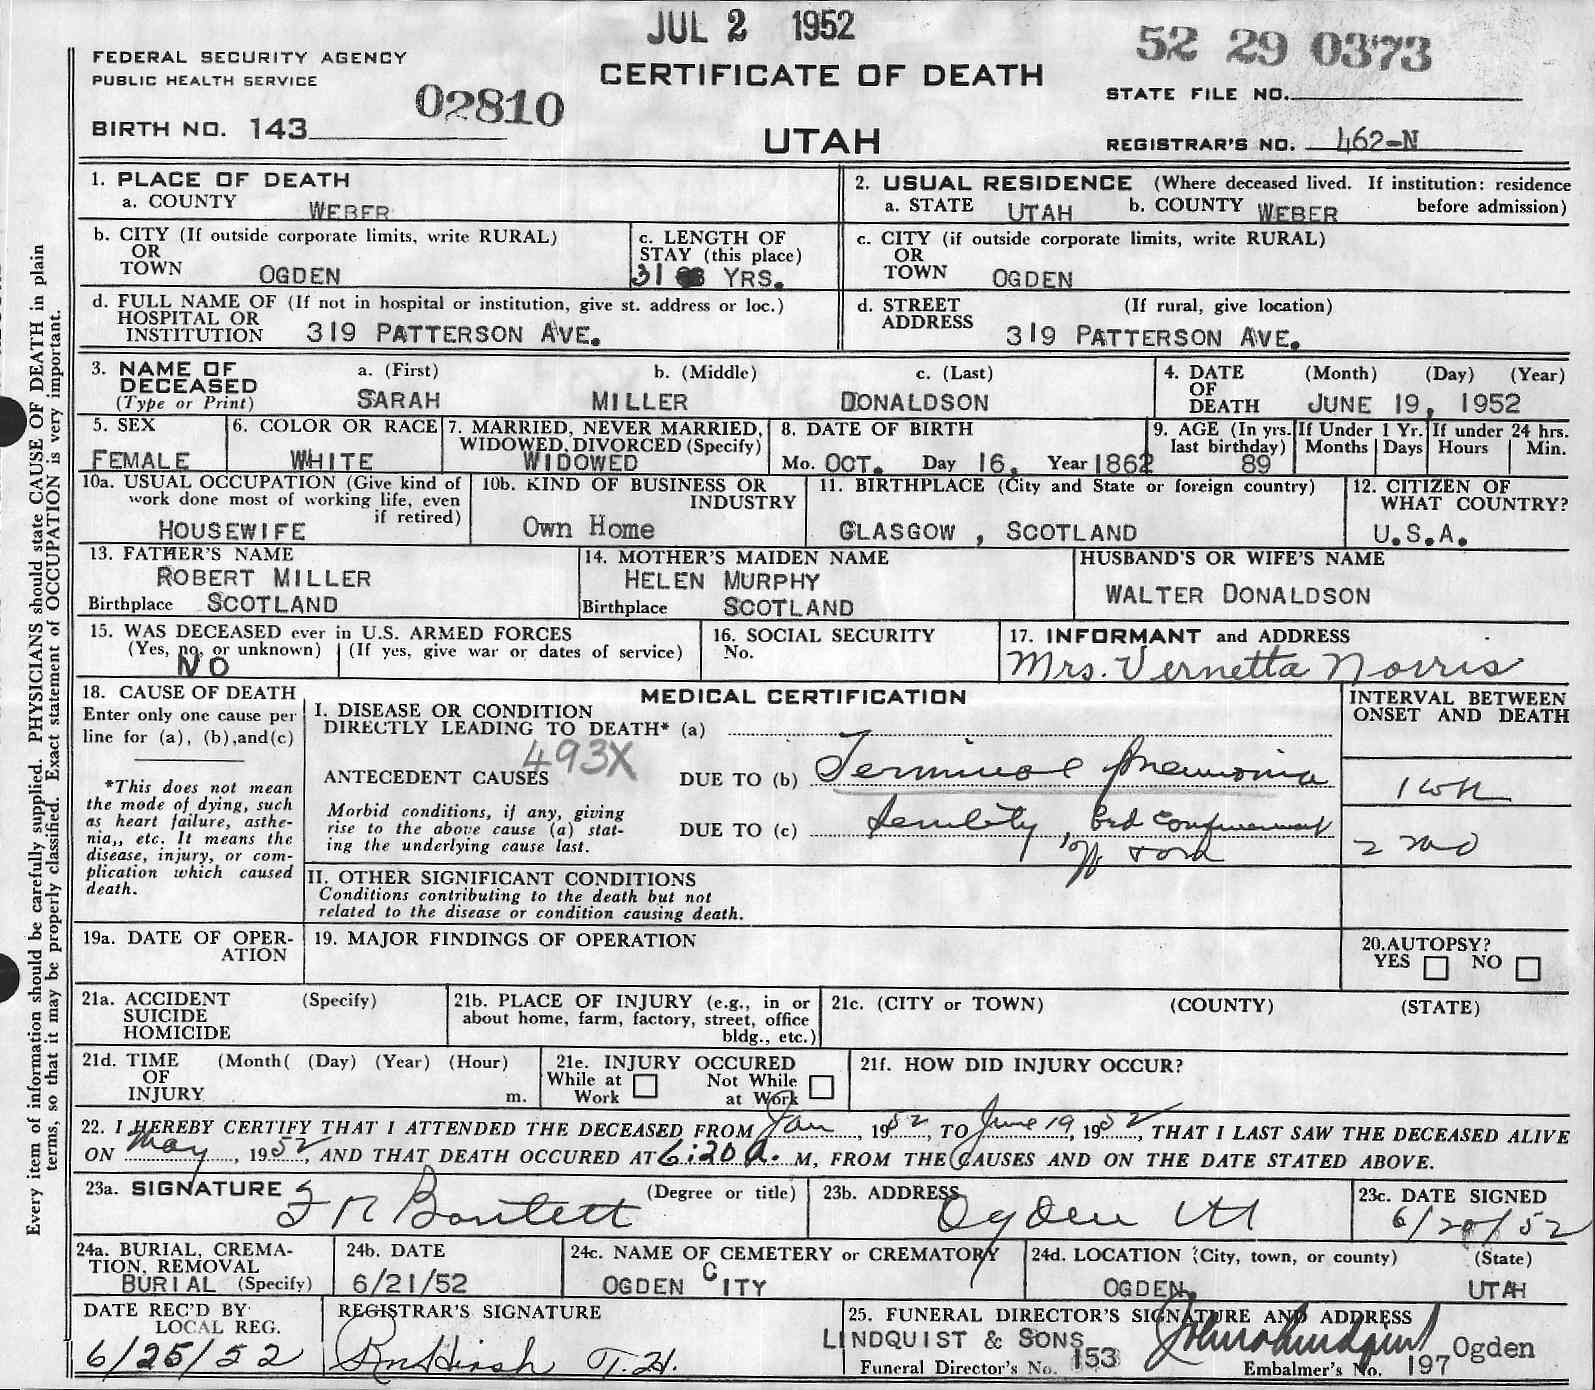 JUL 2 1952
52 29 0373
FEDERAL SECURITY AGENCY
PUBLIC HEALTH SERVICE
CERTIFICATE OF DEATH
UTAH
STATE FILE NO.
02810
BIRTH NO. 143
REGISTRAR'S NO. 462-N
Every item of information should be carefully supplied. PHYSICIANS should state CAUSE OF DEATH in plain
terms, so that it may be properly classified. Exact statement of OCCUPATION is very important.
1. PLACE OF DEATH
a. COUNTY WEBER
2. USUAL RESIDENCE (Where deceased lived. If institution: residence
a. STATE UTAH b. COUNTY WEBER before admission)
b. CITY (If outside corporate limits, write RURAL)
OR
TOWN OGDEN
c. LENGTH OF
STAY (this place)
31 YRS.
c. CITY (if outside corporate limits, write RURAL)
OR
TOWN OGDEN
d. FULL NAME OF (If not in hospital or institution, give st. address or loc.)
HOSPITAL OR
INSTITUTION 319 PATTERSON AVE.
d. STREET (If rural, give location)
ADDRESS 319 PATTERSON AVE.
3. NAME OF a. (First) b. (Middle) c. (Last)
DECEASED
(Type or Print) SARAH MILLER DONALDSON
4. DATE (Month) (Day) (Year)
OF
DEATH JUNE 19, 1952
5. SEX
FEMALE
6. COLOR OR RACE
WHITE
7. MARRIED, NEVER MARRIED,
WIDOWED, DIVORCED (Specify)
WIDOWED
8. DATE OF BIRTH
Mo. OCT. Day 16, Year 1862
9. AGE (In yrs.
last birthday)
89
If Under 1 Yr.
Months Days
If under 24 hrs.
Hours Min.
10a. USUAL OCCUPATION (Give kind of
work done most of working life, even
if retired)
HOUSEWIFE
10b. KIND OF BUSINESS OR
INDUSTRY
Own Home
11. BIRTHPLACE (City and State or foreign country)
GLASGOW , SCOTLAND
12. CITIZEN OF
WHAT COUNTRY?
U.S.A.
13. FATHER'S NAME
ROBERT MILLER
Birthplace SCOTLAND
14. MOTHER'S MAIDEN NAME
HELEN MURPHY
Birthplace SCOTLAND
HUSBAND'S OR WIFE'S NAME
WALTER DONALDSON
15. WAS DECEASED ever in U.S. ARMED FORCES
(Yes, no, or unknown) (If yes, give war or dates of service)
NO
16. SOCIAL SECURITY
No.
17. INFORMANT and ADDRESS
Mrs. Vernetta Norris
18. CAUSE OF DEATH
Enter only one cause per
line for (a), (b),and(c)
*This does not mean
the mode of dying, such
as heart failure, asthe-
nia,, etc. It means the
disease, injury, or com-
plication which caused
death.
MEDICAL CERTIFICATION
I. DISEASE OR CONDITION
DIRECTLY LEADING TO DEATH* (a)
493X
ANTECEDENT CAUSES DUE TO (b) Terminal pneumonia
Morbid conditions, if any, giving
rise to the above cause (a) stat-
ing the underlying cause last.
DUE TO (c) Senility, bed confinement
INTERVAL BETWEEN
ONSET AND DEATH
1 wk
2 mo
II. OTHER SIGNIFICANT CONDITIONS
Conditions contributing to the death but not
related to the disease or condition causing death.
19a. DATE OF OPER-
ATION
19. MAJOR FINDINGS OF OPERATION
20.AUTOPSY?
YES NO
21a. ACCIDENT (Specify)
SUICIDE
HOMICIDE
21b. PLACE OF INJURY (e.g., in or
about home, farm, factory, street, office
bldg., etc.)
21c. (CITY or TOWN) (COUNTY) (STATE)
21d. TIME (Month( (Day) (Year) (Hour)
OF
INJURY m.
21e. INJURY OCCURED
While at Not While
Work at Work
21f. HOW DID INJURY OCCUR?
22. I HEREBY CERTIFY THAT I ATTENDED THE DECEASED FROM Jan, 1952, TO June 19, 1952, THAT I LAST SAW THE DECEASED ALIVE
ON May, 1952, AND THAT DEATH OCCURED AT 6:20 A. M, FROM THE CAUSES AND ON THE DATE STATED ABOVE.
23a. SIGNATURE (Degree or title)
Bartlett
23b. ADDRESS
Ogden Ut
23c. DATE SIGNED
6/20/52
24a. BURIAL, CREMA-
TION, REMOVAL
BURIAL (Specify)
24b. DATE
6/21/52
24c. NAME OF CEMETERY or CREMATORY
OGDEN CITY
24d. LOCATION (City, town, or county) (State)
OGDEN, UTAH
DATE REC'D BY
LOCAL REG.
6/25/52
REGISTRAR'S SIGNATURE
T.H.
25. FUNERAL DIRECTOR'S SIGNATURE AND ADDRESS
LINDQUIST & SONS Ogden
Funeral Director's No. 153 Embalmer's No. 197